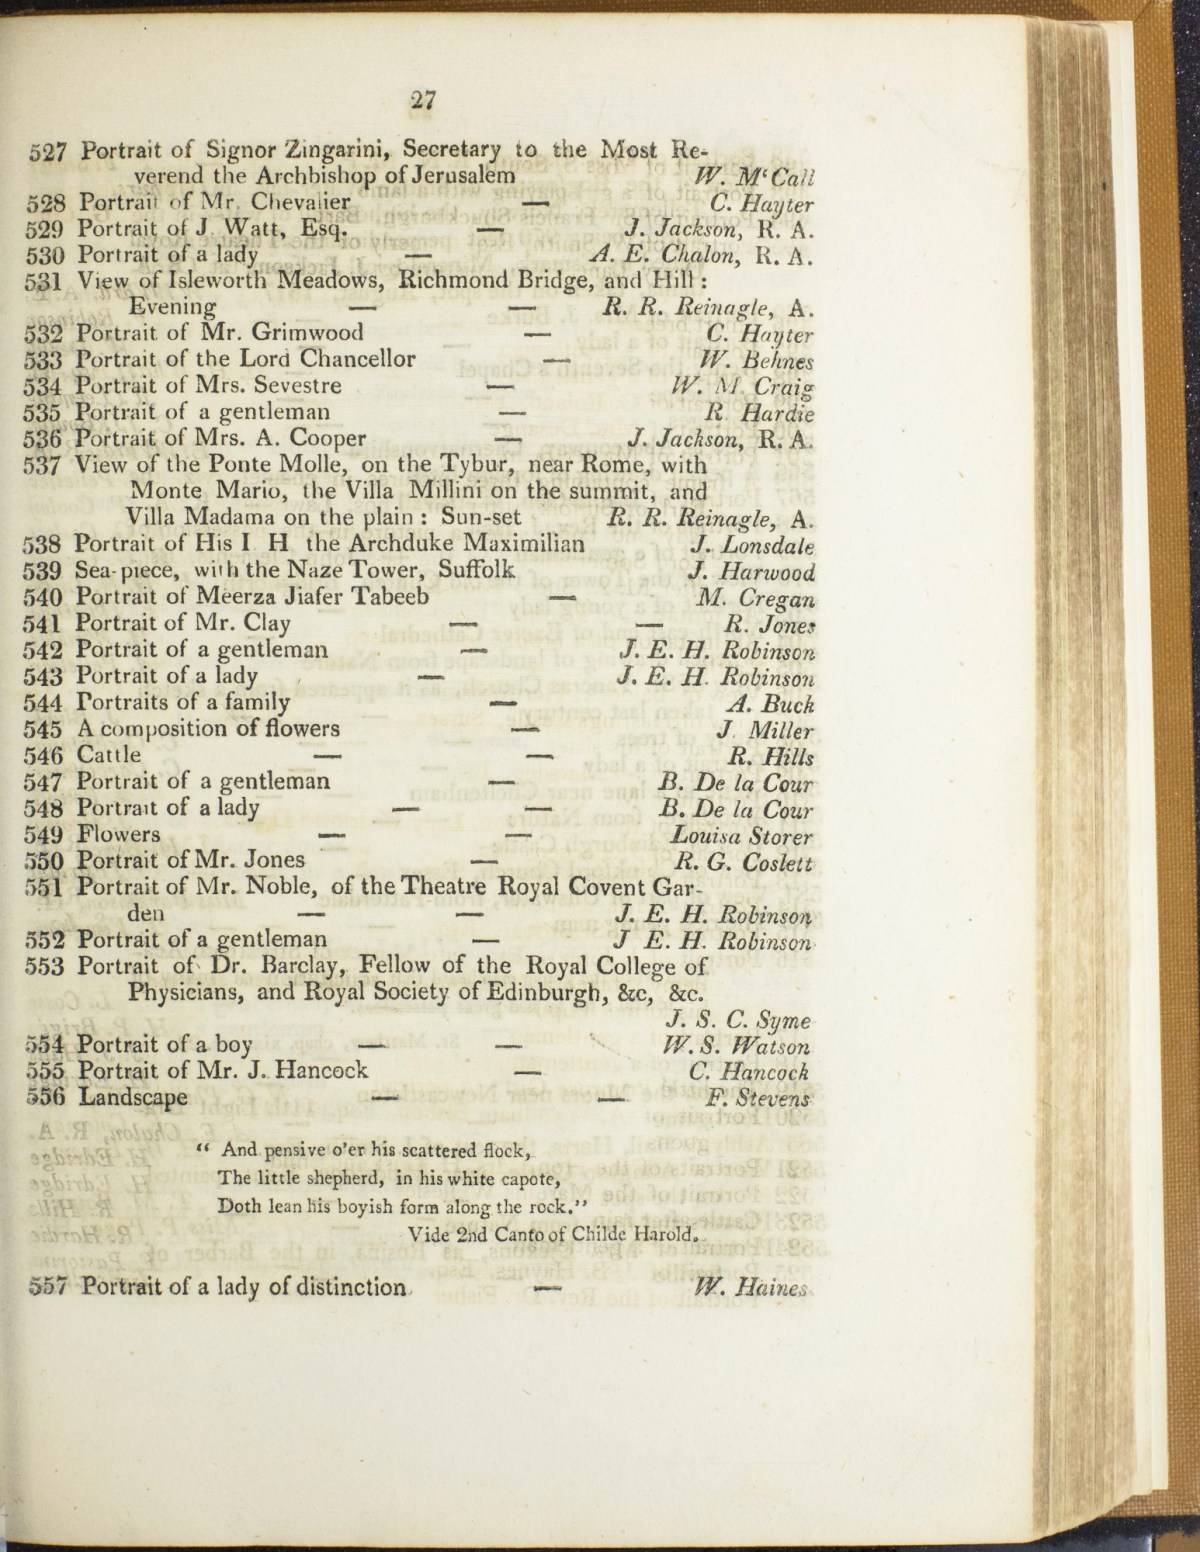 27
527 Portrait of Signor Zingarini, Secretary to the Most Re-
verend the Archbishop of Jerusalem W. Mc Call
528 Portrait of Mr. Chevalier — C. Hayter
529 Portrait of J. Watt, Esq. — J. Jackson, R. A.
530 Portrait of a lady — A. E. Chalon, R. A.
531 View of Isleworth Meadows, Richmond Bridge, and Hill :
Evening — — R. R. Reinagle, A.
532 Portrait of Mr. Grimwood — C. Hayter
533 Portrait of the Lord Chancellor — W. Behnes
534 Portrait of Mrs. Sevestre — W. M. Craig
535 Portrait of a gentleman — R. Hardie
536 Portrait of Mrs. A. Cooper — J. Jackson, R. A.
537 View of the Ponte Molle, on the Tybur, near Rome, with
Monte Mario, the Villa Millini on the summit, and
Villa Madama on the plain : Sun-set R. R. Reinagle, A.
538 Portrait of His I H the Archduke Maximilian J. Lonsdale
539 Sea-piece, with the Naze Tower, Suffolk J. Harwood
540 Portrait of Meerza Jiafer Tabeeb — M. Cregan
541 Portrait of Mr. Clay — — R. Jones
542 Portrait of a gentleman — J. E. H. Robinson
543 Portrait of a lady — J. E. H. Robinson
544 Portraits of a family — A. Buck
545 A composition of flowers — J. Miller
546 Cattle — — R. Hills
547 Portrait of a gentleman — B. De la Cour
548 Portrait of a lady — — B. De la Cour
549 Flowers — — Louisa Storer
550 Portrait of Mr. Jones — R. G. Coslett
551 Portrait of Mr. Noble, of the Theatre Royal Covent Gar-
den — — J. E. H. Robinson
552 Portrait of a gentleman — J E. H. Robinson
553 Portrait of Dr. Barclay, Fellow of the Royal College of
Physicians, and Royal Society of Edinburgh, &c, &c.
J. S. C. Syme
554 Portrait of a boy — — W. S. Watson
555 Portrait of Mr. J. Hancock — C. Hancock
556 Landscape — — F. Stevens
“ And pensive o’er his scattered flock,
The little shepherd, in his white capote,
Doth lean his boyish form along the rock.’’
Vide 2nd Canto of Childe Harold.
557 Portrait of a lady of distinction — W. Haines